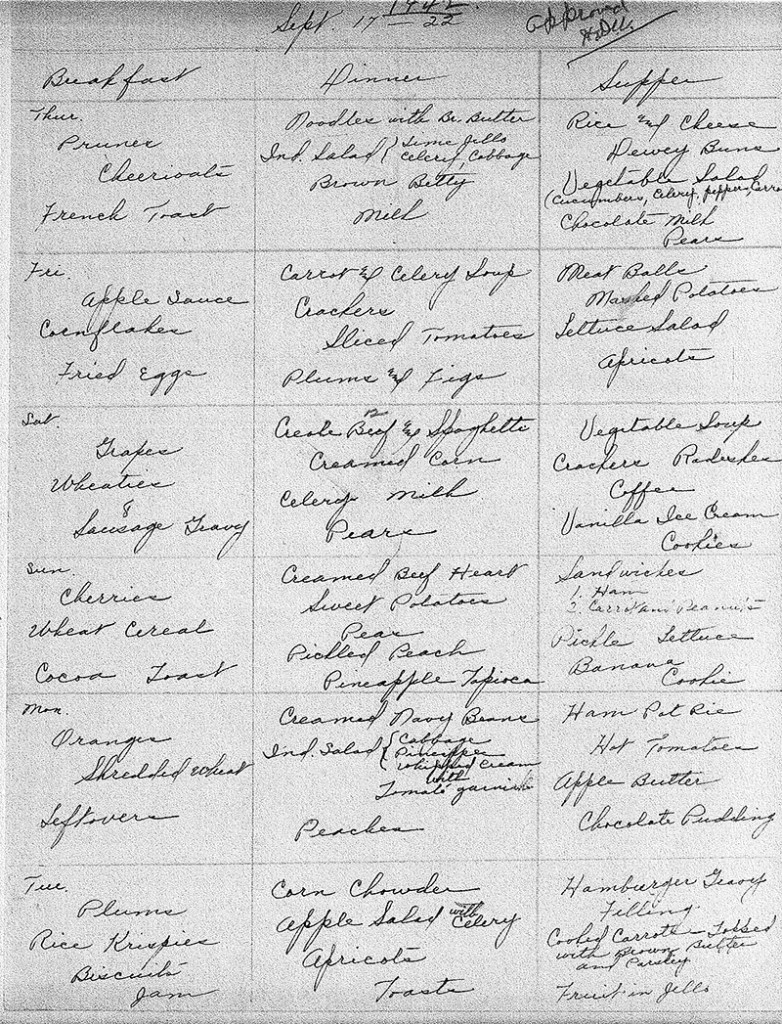 1942
Sept. 17 - 22
Approved
Breakfast
Dinner
Supper
Thur.
Prunes
Cheerioats
French Toast
Noodles with Br. Butter
Ind. Salad { Lime Jello
Celery, Cabbage
Brown Betty
Milk
Rice and Cheese
Dewey Buns
Vegetable Salad
(Cucumbers, Celery, peppers, Carro
Chocolate Milk
Pears
Fri.
Apple Sauce
Cornflakes
Fried Eggs
Carrot & Celery Soup
Crackers
Sliced Tomatoes
Plums & Figs
Meat Balls
Mashed Potatoes
Lettuce Salad
Apricots
Sat.
Grapes
Wheaties
Sausage Gravy
Creole Beef & Spaghetti
Creamed Corn
Celery Milk
Pears
Vegetable Soup
Crackers Radishes
Coffee
Vanilla Ice Cream
Cookies
Sun.
Cherries
Wheat Cereal
Cocoa Toast
Creamed Beef Heart
Sweet Potatoes
Peas
Pickled Peach
Pineapple Tapioca
Sandwiches
1. Ham
2. Carrot and Peanuts
Pickle Lettuce
Banana
Cookie
Mon.
Oranges
Shredded Wheat
Leftovers
Creamed Navy Beans
Ind. Salad { Cabbage
Pineapple
Whipped Cream
with
Tomato garnish
Peaches
Ham Pot Pie
Hot Tomatoes
Apple Butter
Chocolate Pudding
Tue.
Plums
Rice Krispies
Biscuits
Jam
Corn Chowder
Apple Salad with Celery
Apricots
Toasts
Hamburger Gravy
Filling
Cooked Carrots - Tossed
with Brown Butter
and Parsley
Fruit in Jello